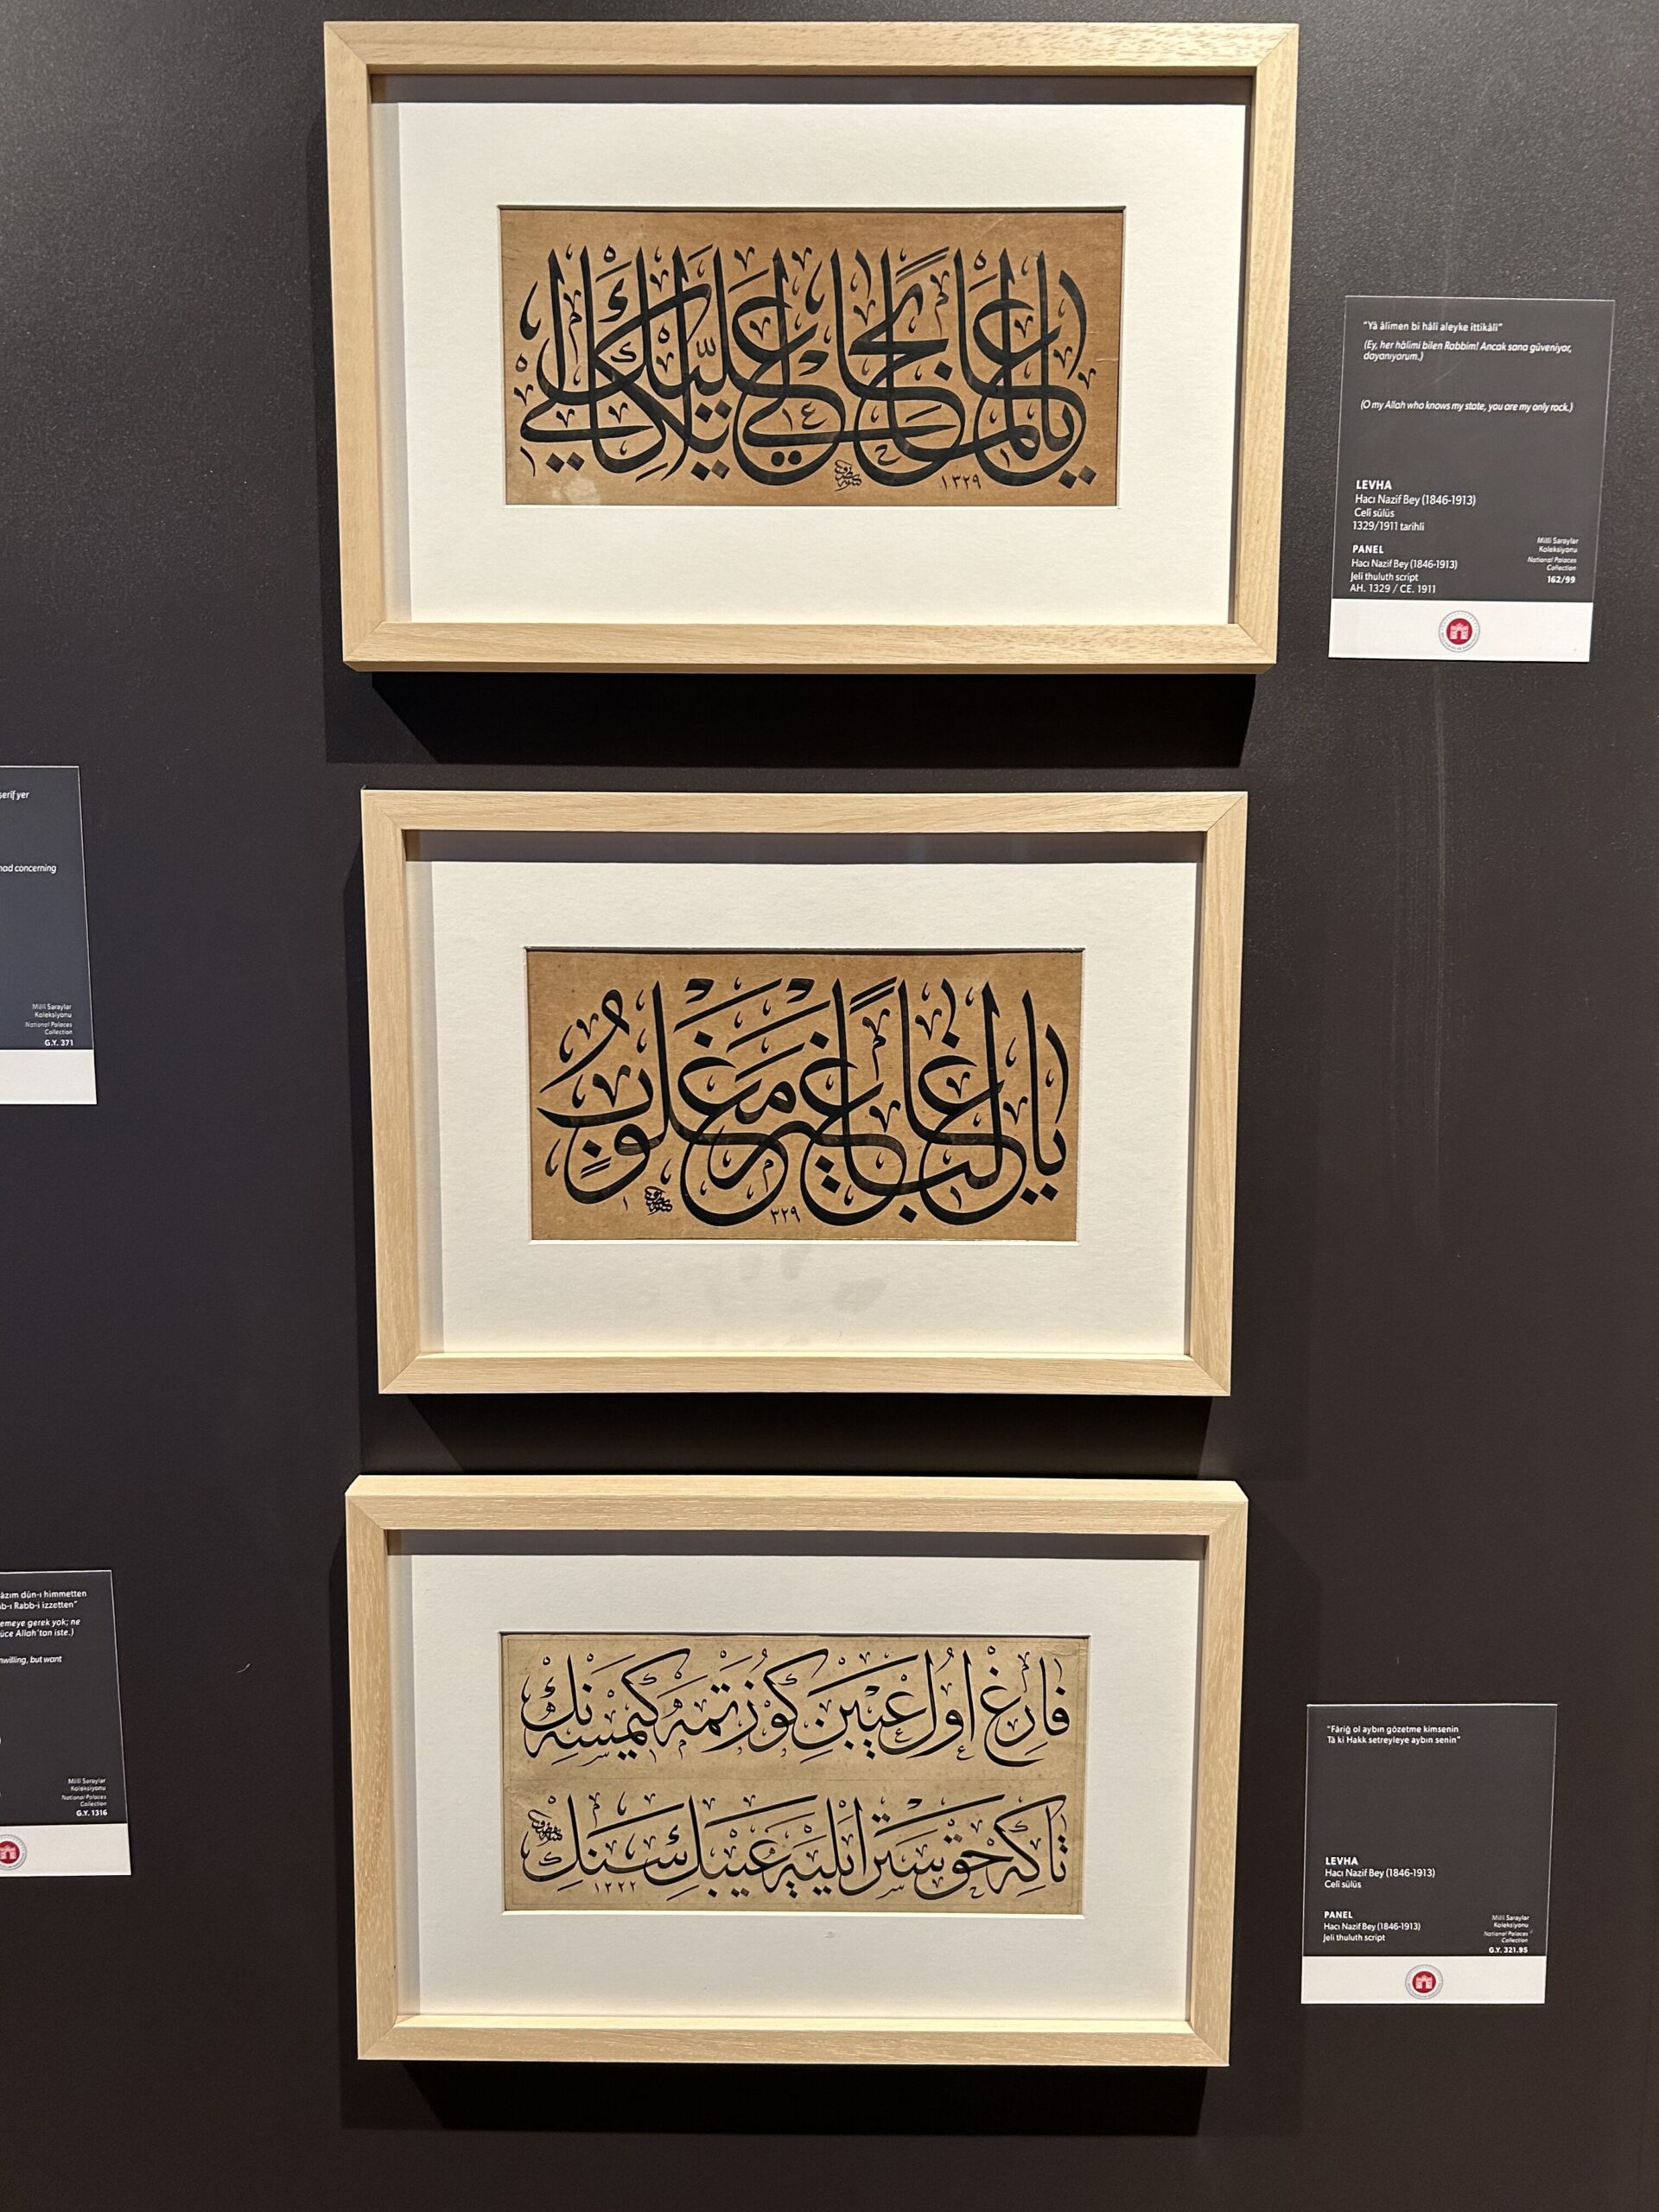 يا عالما بحالي عليك اتكالي
١٣٢٩
"Yâ âlimen bi hâlî aleyke ittikâlî"
(Ey, her hâlimi bilen Rabbim! Ancak sana güveniyor,
dayanıyorum.)
(O my Allah who knows my state, you are my only rock.)
LEVHA
Hacı Nazif Bey (1846-1913)
Celî sülüs
1329/1911 tarihli
PANEL
Hacı Nazif Bey (1846-1913)
Jeli thuluth script
AH. 1329 / CE. 1911
Milli Saraylar
Koleksiyonu
National Palaces
Collection
162/99
يا غالبا غير مغلوب
٣٢٩
فارغ اول عيبن كوزتمه كيمسه نك
تا كه حق ستر ايليه عيبك سنك
١٣٢٢
"Fâriğ ol aybın gözetme kimsenin
Tâ ki Hakk setreyleye aybın senin"
LEVHA
Hacı Nazif Bey (1846-1913)
Celî sülüs
PANEL
Hacı Nazif Bey (1846-1913)
Jeli thuluth script
Milli Saraylar
Koleksiyonu
National Palaces
Collection
G.Y. 321.95
şerif yer
concerning
Milli Saraylar
Koleksiyonu
National Palaces
Collection
G.Y. 371
dûn-ı himmetten
Rabb-i izzetten"
gerek yok; ne
Allah'tan iste.)
but want
Milli Saraylar
Koleksiyonu
National Palaces
Collection
G.Y. 1316